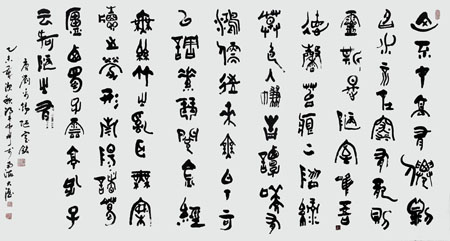 山不在高有僊則
名水不在深有龍則
靈斯是陋室惟吾
德馨苔痕上階綠
草色入簾青談笑有
鴻儒往來無白丁可
以調素琴閱金經
無絲竹之亂耳無案
牘之勞形南陽諸葛
廬西蜀子雲亭孔子
云何陋之有
唐劉禹錫陋室銘
乙未